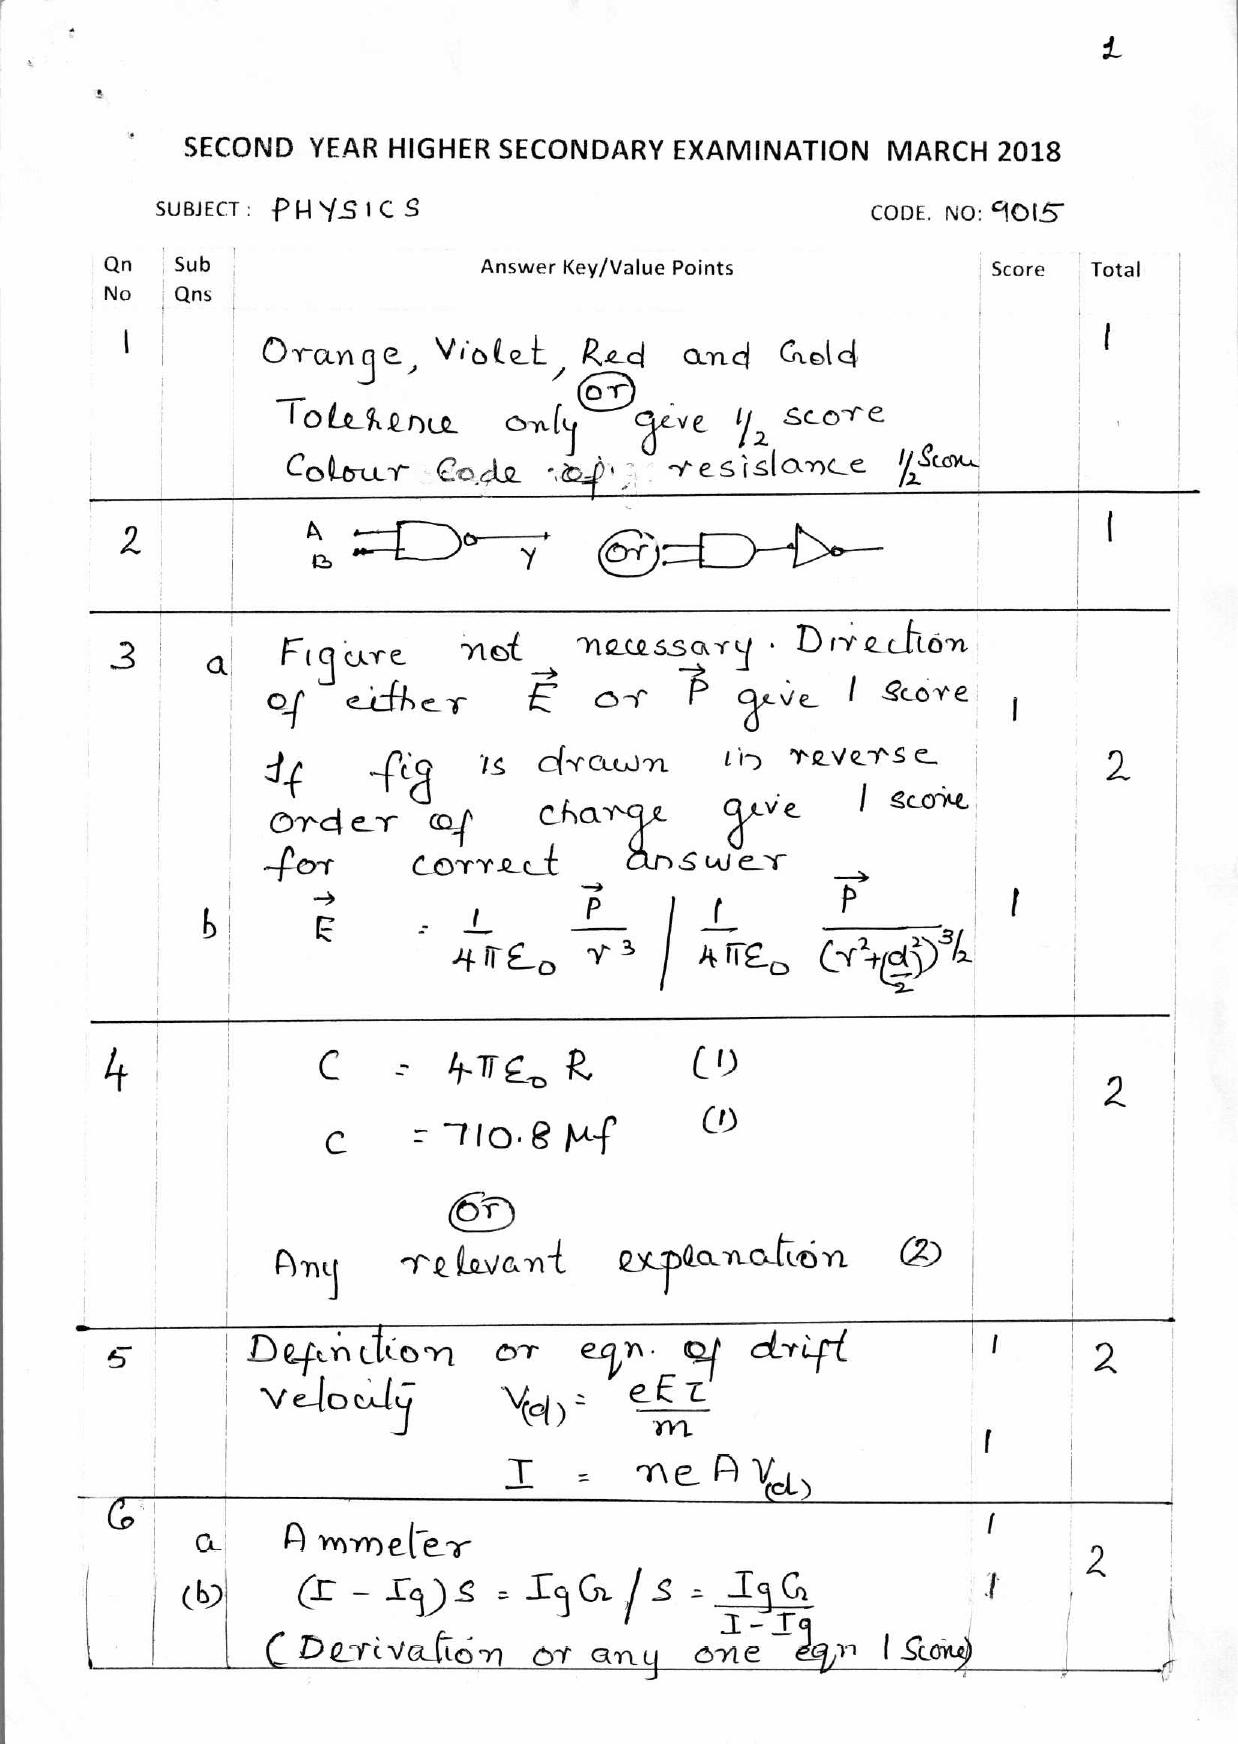 1
SECOND YEAR HIGHER SECONDARY EXAMINATION MARCH 2018
SUBJECT: PHYSICS CODE. NO: 9015
Qn No Sub Qns Answer Key/Value Points Score Total
1 Orange, Violet, Red and Gold 1
(or)
Tolerence only give 1/2 score
Colour Code of resistance 1/2 Score
2 A B Y (or) 1
3 a Figure not necessary. Direction
of either E⃗ or P⃗ give 1 score 1
If fig is drawn in reverse 2
order of charge give 1 score
for correct answer
b E⃗ = 1/4πε₀ P⃗/r³ / 1/4πε₀ P⃗/(r²+(d/2)²)^3/2 1
4 C = 4πε₀ R (1) 2
C = 710.8 μf (1)
(or)
Any relevant explanation (2)
5 Definition or eqn. of drift 1 2
velocity V(d) = eEτ/m
I = neAV(d) 1
6 a Ammeter 1 2
(b) (I - Ig)S = IgG / S = IgG/I-Ig 1
(Derivation or any one eqn 1 Score)